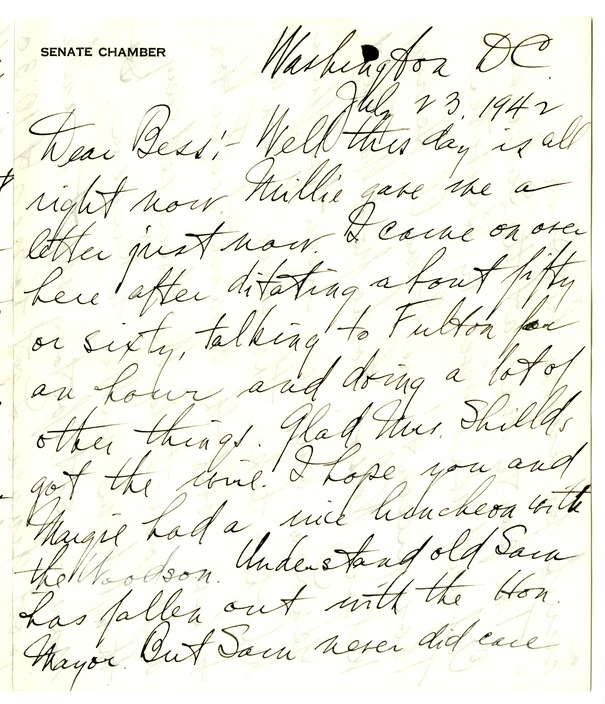 SENATE CHAMBER
Washington DC.
July 23, 1942
Dear Bess:- Well this day is all
right now. Millie gave me a
letter just now. I came on over
here after ditating about fifty
or sixty, talking to Fulton for
an hour and doing a lot of
other things. Glad Mrs. Shields
got the wire. I hope you and
Margie had a nice luncheon with
the Woodson. Understand old Sam
has fallen out with the Hon.
Mayor. But Sam never did care